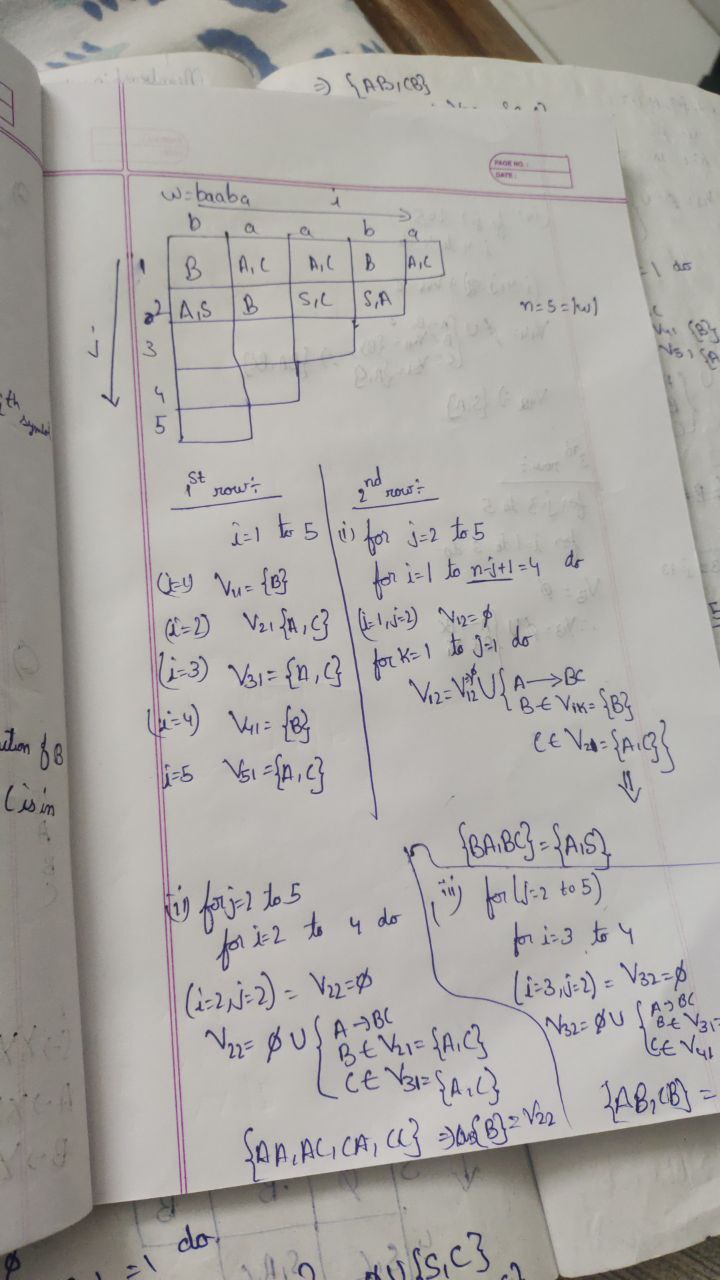 ⇒ {AB,CB}
PAGE NO.:
DATE:
w=baaba
i
b a a b a
1 B A,C A,C B A,C
2 A,S B S,C S,A
n=5=|w|
j
3
4
5
ith
symbol
=1 do
V41 {B}
V51 {A
1st row:-
i=1 to 5
(i=1) V11={B}
(i=2) V21{A,C}
(i=3) V31={A,C}
(i=4) V41={B}
i=5 V51={A,C}
2nd row:-
(i) for j=2 to 5
for i=1 to n-j+1=4 do
(i=1,j=2) V12=∅
for K=1 to j=1 do
V12=V12 U { A→BC
B ∈ V1K={B}
C ∈ V21={A,C}}
⇓
{BA,BC}={A,S}
of B
C is in
(ii) for j=2 to 5
for i=2 to 4 do
(i=2,j=2) = V22=∅
V22= ∅ U { A→BC
B ∈ V21={A,C}
C ∈ V31={A,C}
{AA,AC,CA,CC} ⇒ {B}=V22
(iii) for (j=2 to 5)
for i=3 to 4
(i=3,j=2) = V32=∅
V32=∅U { A→BC
B ∈ V31=
C ∈ V41
{AB,CB} =
=1 do
U{S,C}